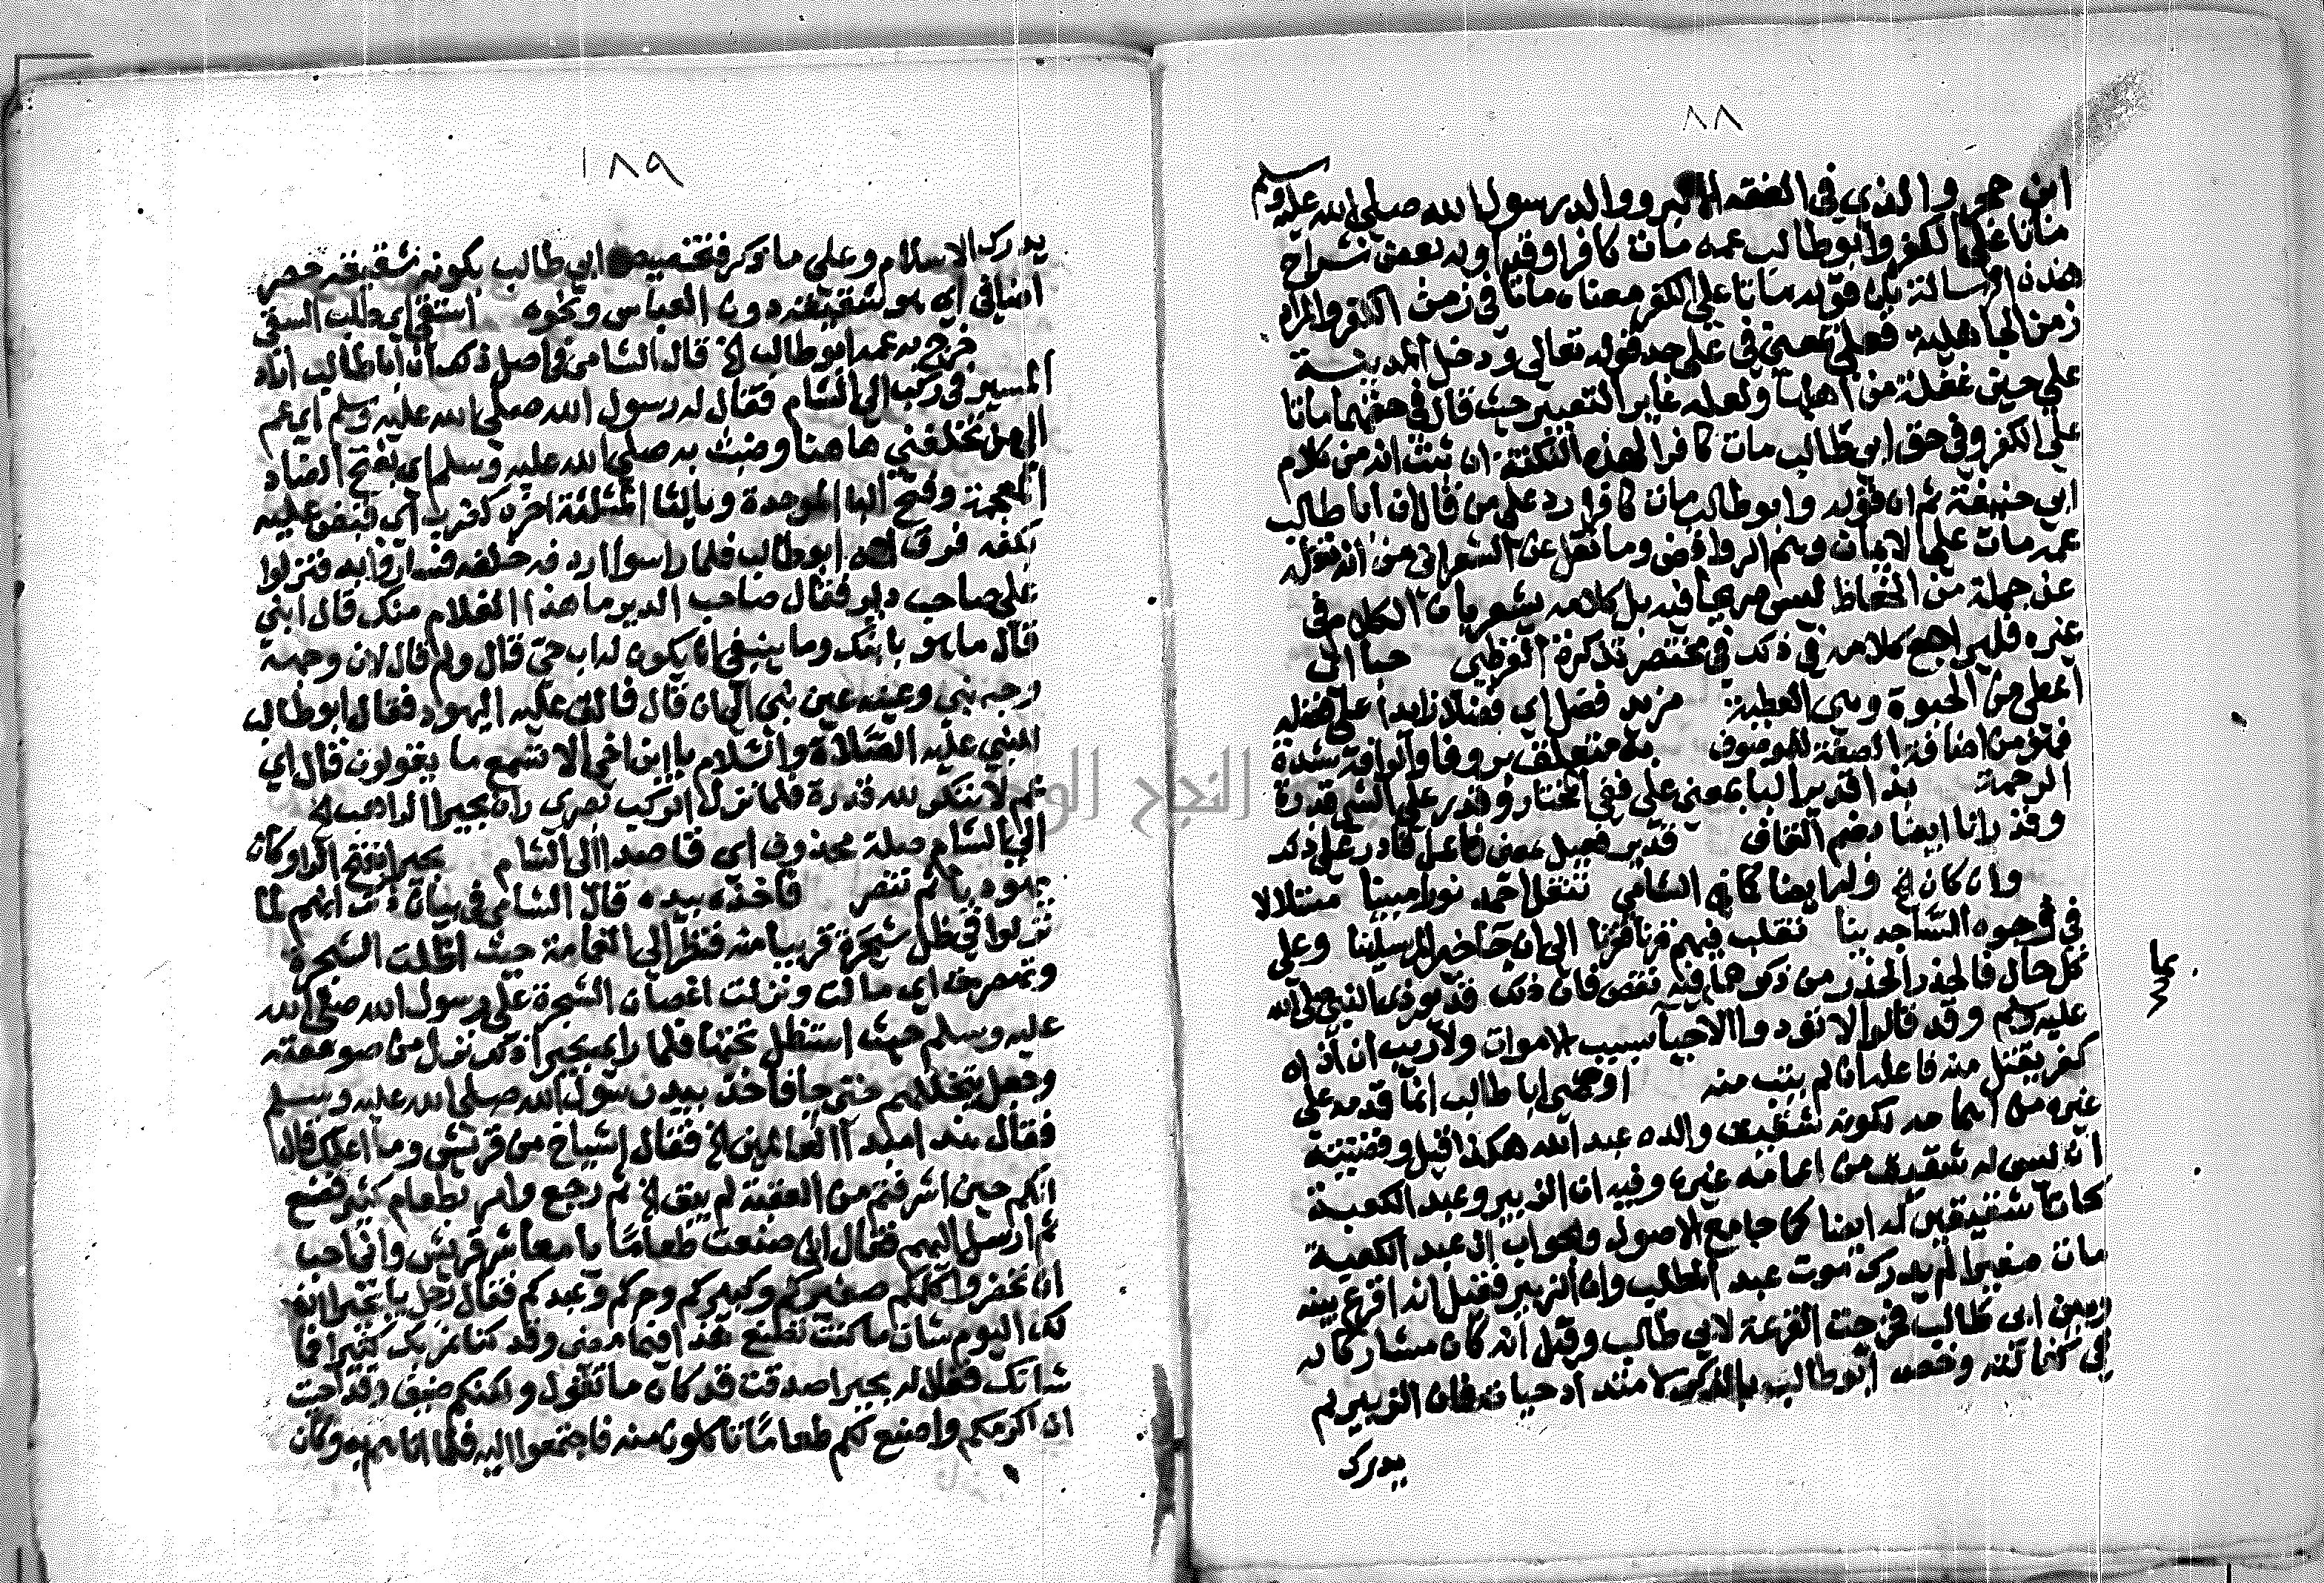 ٨٨
ابن حجر والذي في الفقه الاكبر ووالد رسول الله صلى الله عليه وسلم
ماتا على الكفر وابو طالب عمه مات كافرا وقد اوله بعض شراح
هذه الرسالة بان قوله ماتا على الكفر معناه ماتا في زمن الكفر والمراد
زمن الجاهلية فعلى بمعنى في على حد قوله تعالى ودخل المدينة
على حين غفلة من اهلها ولعله غاير التعبير حيث قال في حقهما ماتا
على الكفر وفي حق ابي طالب مات كافرا لهذه النكتة ان ثبت انه من كلام
ابي حنيفة ثم ان قوله وابو طالب مات كافرا رد على من قال ان ابا طالب
عمه مات على الايمان وهم الروافض وما نقل عن الشعراني من انه نقله
عن جملة من الحفاظ ليس صريحا فيه بل كلامه يشعر بان الكلام في
غيره فليراجع كلامه في ذلك في مختصر تذكرة القرطبي حبا الى
اعطى من الحبوة وهي العطية مزيد فضل اى فضلا زايدا على فضله
فهو من اضافة الصفة للموصوف به متعلق بروفا والرافة شدة
الرحمة بذا قدير البا بمعنى على ففي المختار وقدر على الشي قدرة
وقدرانا ايضا بضم القاف قدير فعيل بمعنى فاعل قادر على ذلك
وان كان الخ وله ايضا كما في الشامي تنقل احمد نورا مبينا متلالا
في وجوه الساجدينا تقلب فيهم قرنا فقرنا الى ان جا خير المرسلينا وعلى
كل حال فالحذر الحذر من ذكرهما بما فيه نقص فان ذلك قد يوذى النبي صلى الله
عليه وسلم وقد قالوا لا تؤذوا الاحيا بسبب الاموات ولا ريب ان اذاه
كفر يقتل منه فاعله ان لم يتب منه اوصى ابا طالب انما قدمه على
غيره من اعمامه لكونه شقيق والده عبد الله هكذا قيل وقضيته
ان ليس له شقيق من اعمامه غيره وفيه ان الزبير وعبد الكعبة
كانا شقيقين له ايضا كما جامع الاصول والجواب ان عبد الكعبة
مات صغيرا لم يدرك موت عبد المطلب وان الزبير فقيل انه اقرع بينه
وبين ابي طالب فخرجت القرعة لابي طالب وقيل انه كان مشاركا له
في كفالته وخص ابو طالب بالذكر لامتداد حياته فان الزبير لم
يدرك
بما
١٨٩
يدرك الاسلام وعلى ما ذكر فتخصيص ابي طالب بكونه شقيقه حصر
اضافى اى هو شقيقه دون العباس ونحوه استقى اى طلب السقي
خرج به عمه ابو طالب الخ قال الشامي في اصل ذلك ان ابا طالب اراد
المسير في ركب الى الشام فقال له رسول الله صلى الله عليه وسلم اى عم
الى من تخلفني هاهنا وضبث به صلى الله عليه وسلم اى بفتح الضاد
المعجمة وفتح البا الموحدة وبالثا المثلثة اخره كضرب اى قبض عليه
بكفه فرق له ابو طالب فلما راسوا اردفه خلفه فساروا به فنزلوا
على صاحب دير فقال صاحب الدير ما هذا الغلام منك قال ابني
قال ما هو بابنك وما ينبغي ان يكون له اب حي قال ولم قال لان وجهه
وجه نبي وعينه عين نبي الى ان قال فاتق عليه اليهود فقال ابو طالب
للنبي عليه الصلاة والسلام يا ابن اخي الا تسمع ما يقولون قال اي
عم لا تنكر لله قدرة فلما نزل الركب بصرى راه بحيرا الراهب الخ
الى الشام صلة محذوف اى قاصدا الى الشام بحيرا بفتح الرا وكان
يهوديا ثم تنصر فاخذه بيده قال الشامي في بيان ذلك انهم لما
نزلوا في ظل شجرة قريبا منه فنظر الى الغمامة حيث اظلت الشجرة
وتهصرت اى مالت ونزلت اغصان الشجرة على رسول الله صلى الله
عليه وسلم حيث استظل تحتها فلما راى بحيرا ذلك نزل من صومعته
وجعل يتخللهم حتى جا فاخذ بيد رسول الله صلى الله عليه وسلم
فقال هذا سيد العالمين الخ فقال اشياخ من قريش وما اعلمك قال
انكم حين اشرفتم من العقبة لم يبق الخ ثم رجع وامر بطعام كثير فصنع
ثم ارسل اليهم فقال انى صنعت طعاما يا معاشر قريش واني احب
ان تحضروا كلكم صغيركم وكبيركم وحركم وعبدكم فقال رجل يا بحيرا ان
لك اليوم شان ما كنت تصنع هذا فيما مضى وقد كنا نمر بك كثيرا فما
شانك فقال له بحيرا صدقت قد كان ما تقول ولكنكم ضيف وقد احببت
ان اكرمكم واصنع لكم طعاما تاكلون منه فاجتمعوا اليه فلما اتاهم به وكان